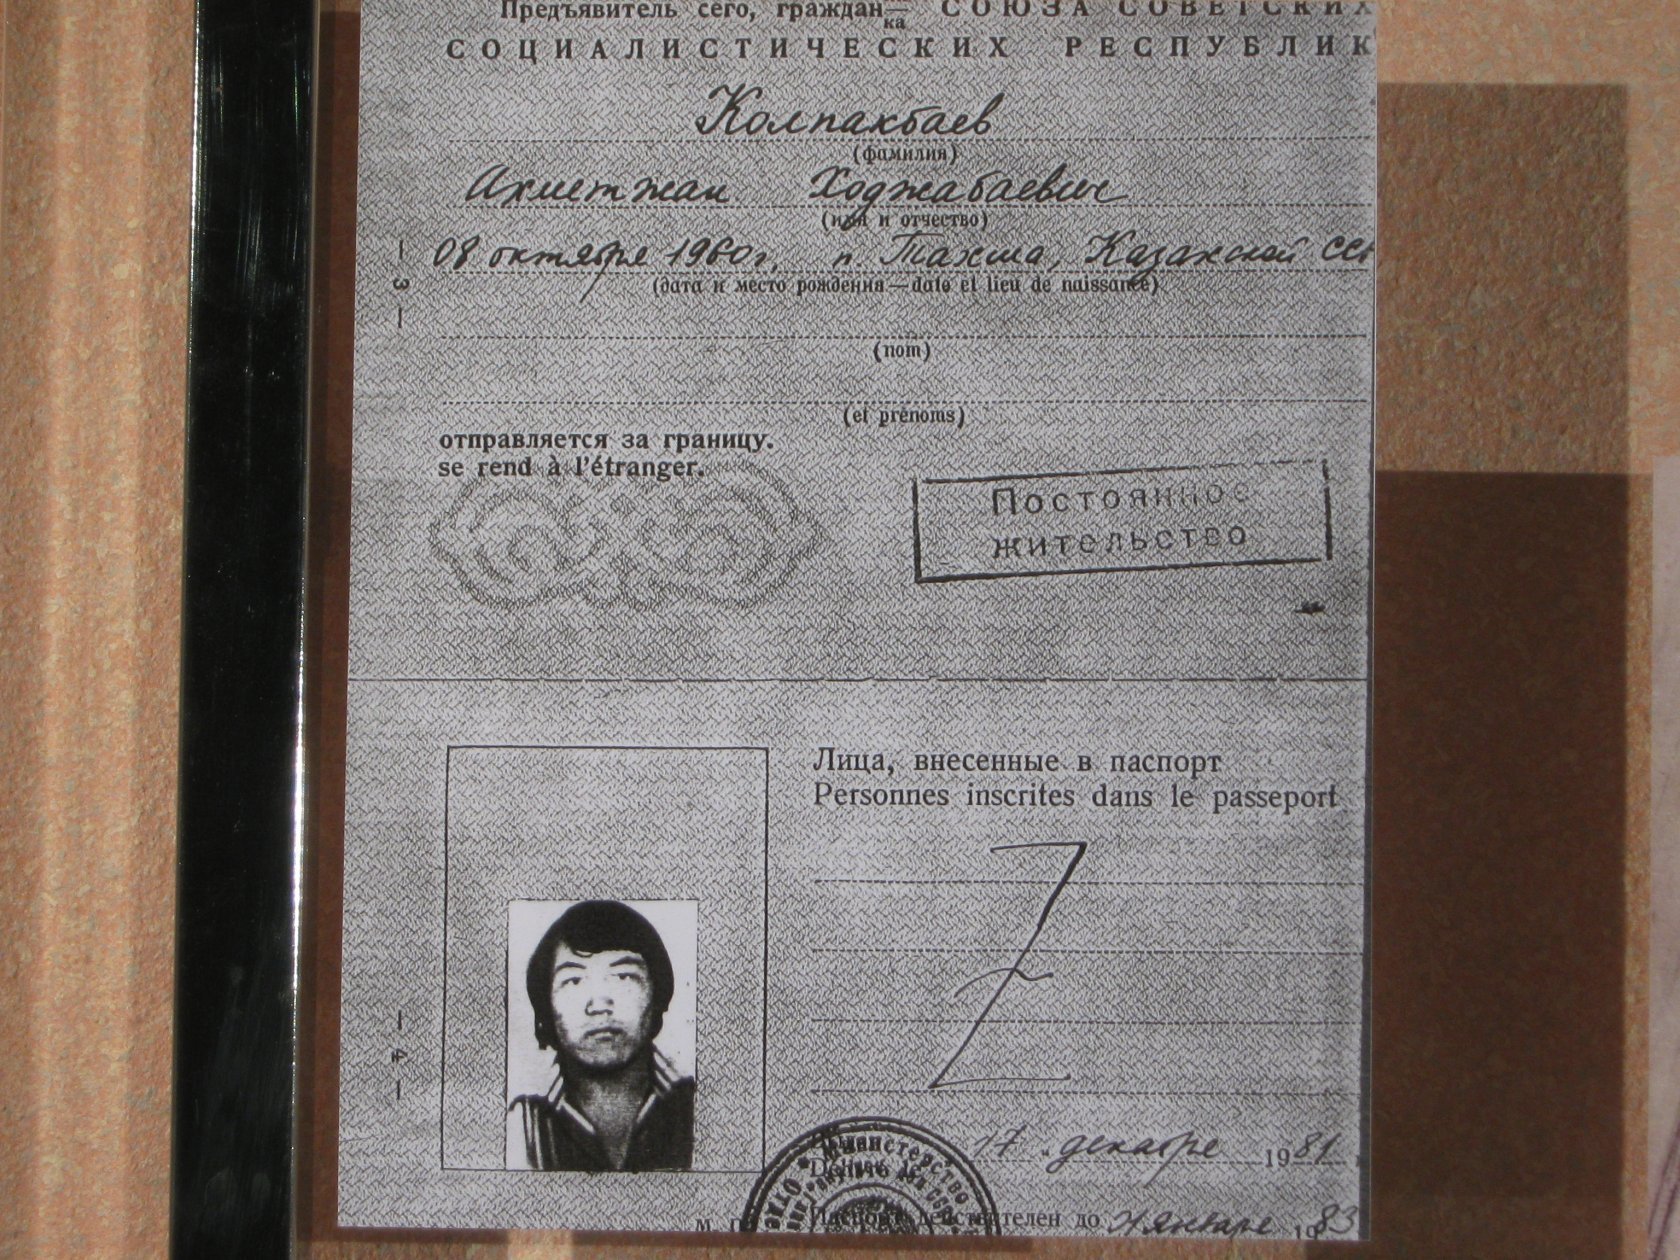 Предъявитель сего, гражданка СОЮЗА СОВЕТСКИХ
СОЦИАЛИСТИЧЕСКИХ РЕСПУБЛИК
Колпакбаев
(фамилия)
Ахметжан Ходжабаевич
(имя и отчество)
08 октября 1960г. п. Тахта, Казахской ССР
(дата и место рождения—date et lieu de naissance)
(nom)
(et prénoms)
отправляется за границу.
se rend à l'étranger.
Постоянное
жительство
— 3 —
Лица, внесенные в паспорт
Personnes inscrites dans le passeport
— 4 —
Министерство
17 декабря 1981
М. П.
Паспорт действителен до января 1983